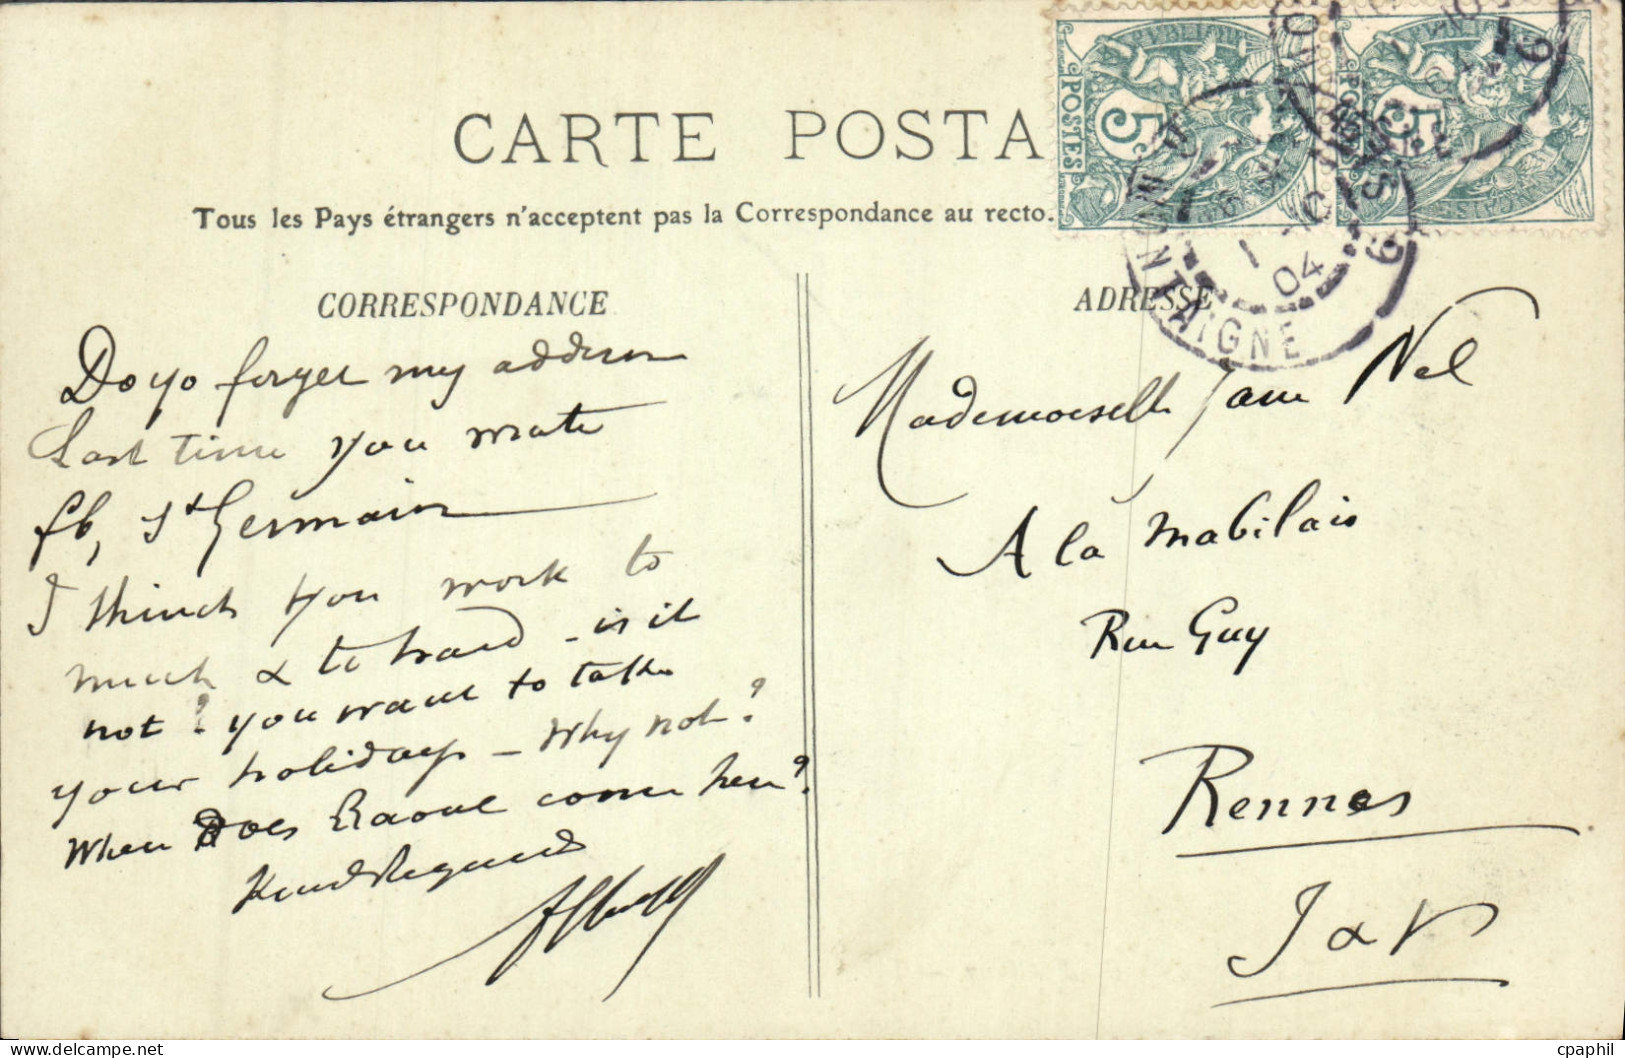 CARTE POSTA
Tous les Pays étrangers n'acceptent pas la Correspondance au recto.
CORRESPONDANCE
Do yo forget my address
Last time you wrote
fb, St Germain
I think you work to
much & to hard - is it
not? you want to take
your holidays - Why not?
When Does Raoul come here?
Kind Regards
ADRESSE
Mademoiselle Jane Nel
A la Mabilais
Rue Guy
Rennes
I & V
POSTES
5
POSTES
5
MONTAIGNE
04
cpaphil